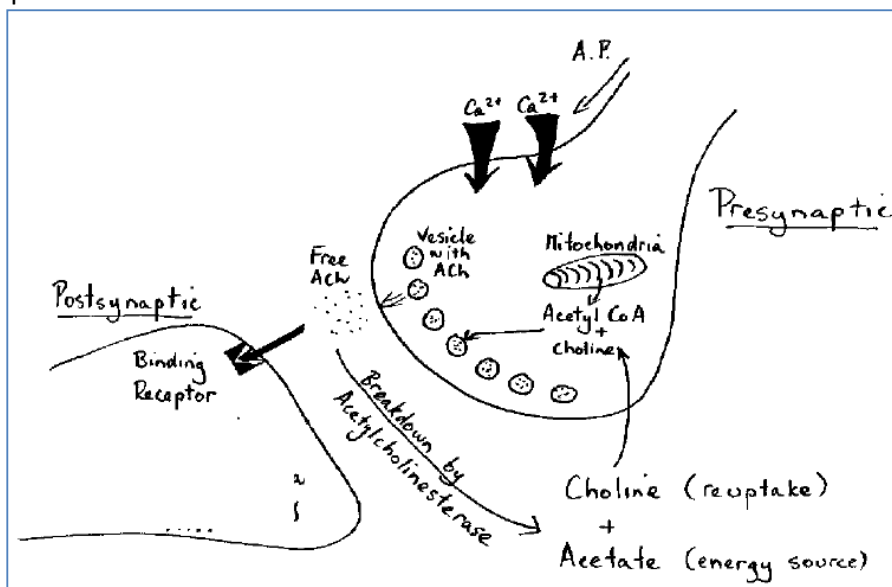 A.P.
Ca²⁺ Ca²⁺
Presynaptic
Vesicle
with
ACh
Mitochondria
Free
ACh
Postsynaptic
Acetyl CoA
+
Choline
Binding
Receptor
Breakdown by
Acetylcholinesterase
Choline (reuptake)
+
Acetate (energy source)